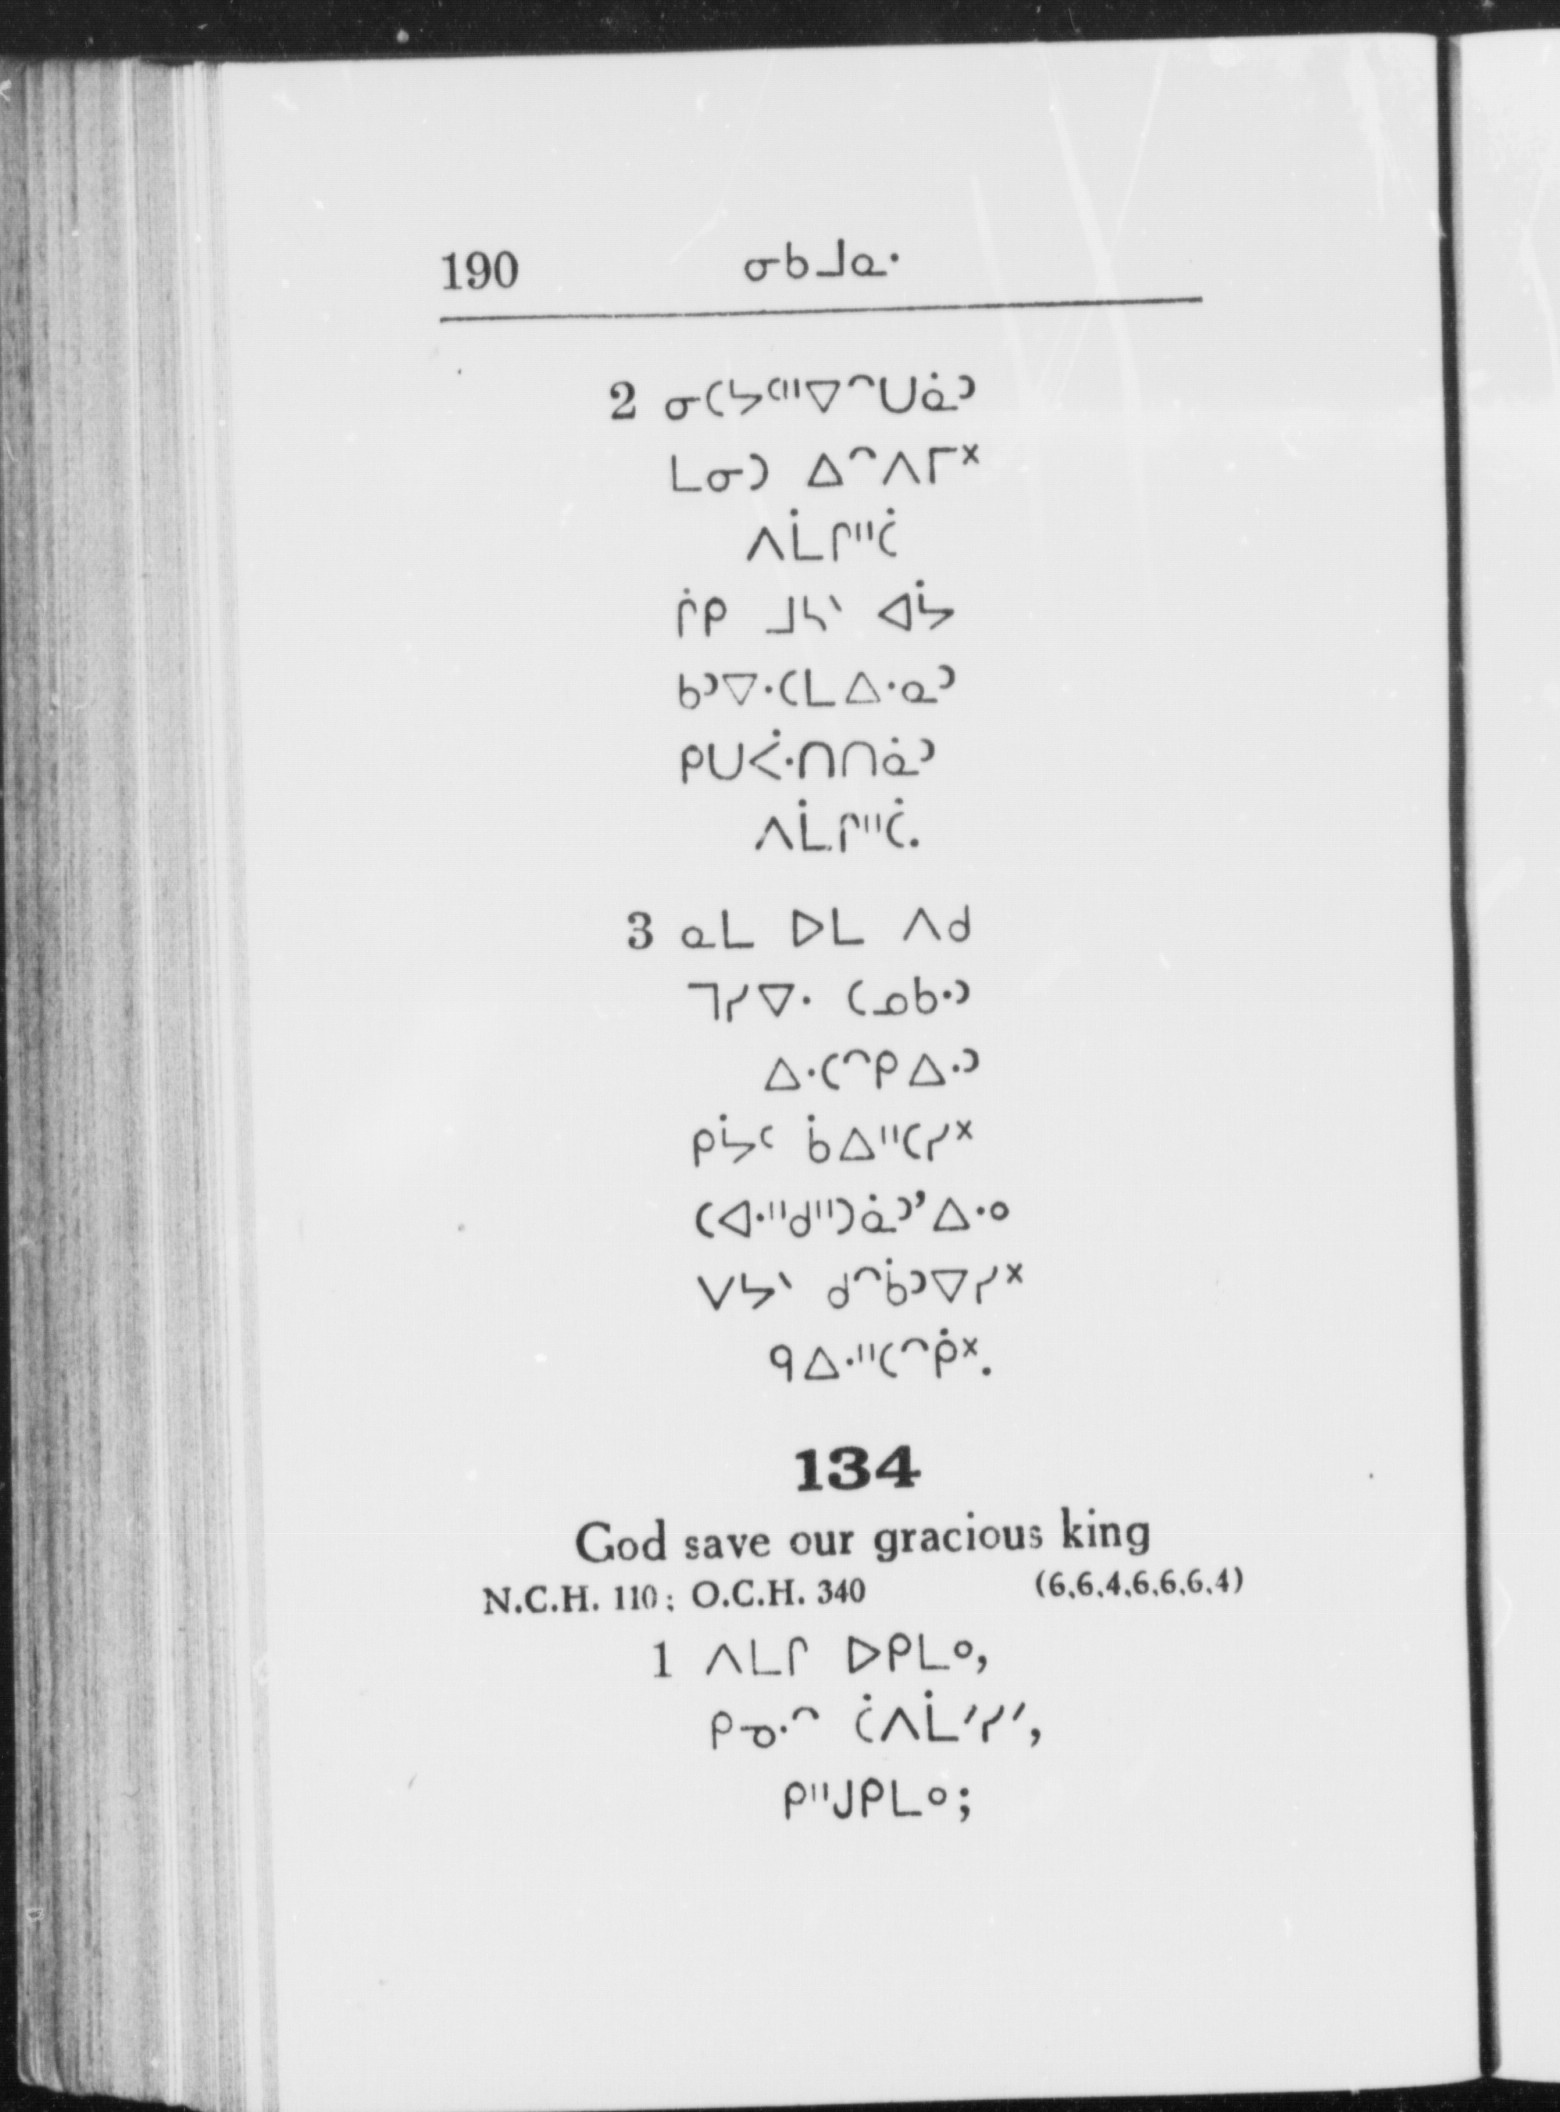 190 ᓂᑲᒧᓇᐧ
2 ᓂᑕᔭᑦᐦᐁᐢᑌᓈᐣ
ᒪᓂᑐ ᐃᐢᐱᒥᕽ
ᐱᒫᒋᐦᑖ
ᒌᑭ ᒧᓴᐠ ᐊᔮ
ᑲᐣᐁᐧᑕᒪᐃᐧᓇᐣ
ᑭᑌᐹᐧᑎᑎᓈᐣ
ᐱᒫᒋᐦᑖ.
3 ᓇᒪ ᐅᒪ ᐱᑯ
ᒣᓯᐁᐧ ᑕᓄᑲᐧᐣ
ᐃᐧᑕᐢᑭᐃᐧᐣ
ᑭᔮᑦ ᑳᐃᐦᑕᓯᕽ
ᑕᐊᐧᐦᑯᐦᑐᓈᐣ’ᐃᐧᐤ
ᐯᔭᐠ ᑯᐢᑳᐣᐁᓯᕽ
ᑫᐃᐧᐦᑕᐢᑮᕽ.
134
God save our gracious king
N.C.H. 110; O.C.H. 340 (6,6,4,6,6,6,4)
1 ᐱᒪᒋ ᐅᑭᒪᐤ,
ᑭᓀᐧᐢ ᑖᐱᒫᐟᓯᐟ,
ᑭᐦᒍᑭᒪᐤ;